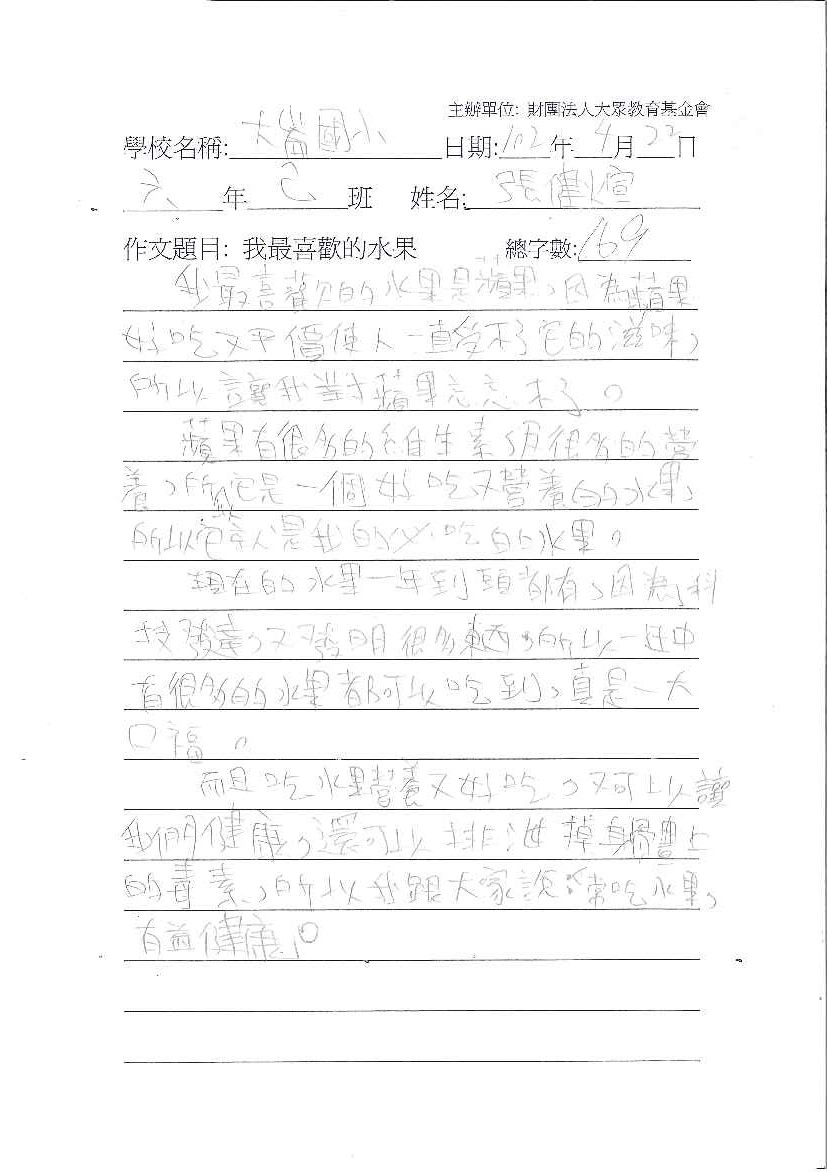 主辦單位: 財團法人大眾教育基金會
學校名稱: 大崙國小 日期: 102 年 4 月 22 日
六 年 己 班 姓名: 張健煊
作文題目: 我最喜歡的水果 總字數: 169
我最喜歡的水果是蘋果，因為蘋果
好吃又平價使人一直受不了它的滋味，
所以讓我對蘋果忘忘不了。
蘋果有很多的維生素，很多的營
養，所以它是一個好吃又營養的的水果，
所以它就是我的必吃的水果。
現在的水果一年到頭都有，因為科
技發達，又發明很多東西，所以一年中
有很多的水果都可以吃到，真是一大
口福。
而且吃水果營養又好吃，又可以讓
我們健康，還可以排泄掉身體上
的毒素，所以我跟大家說：常吃水果，
有益健康。